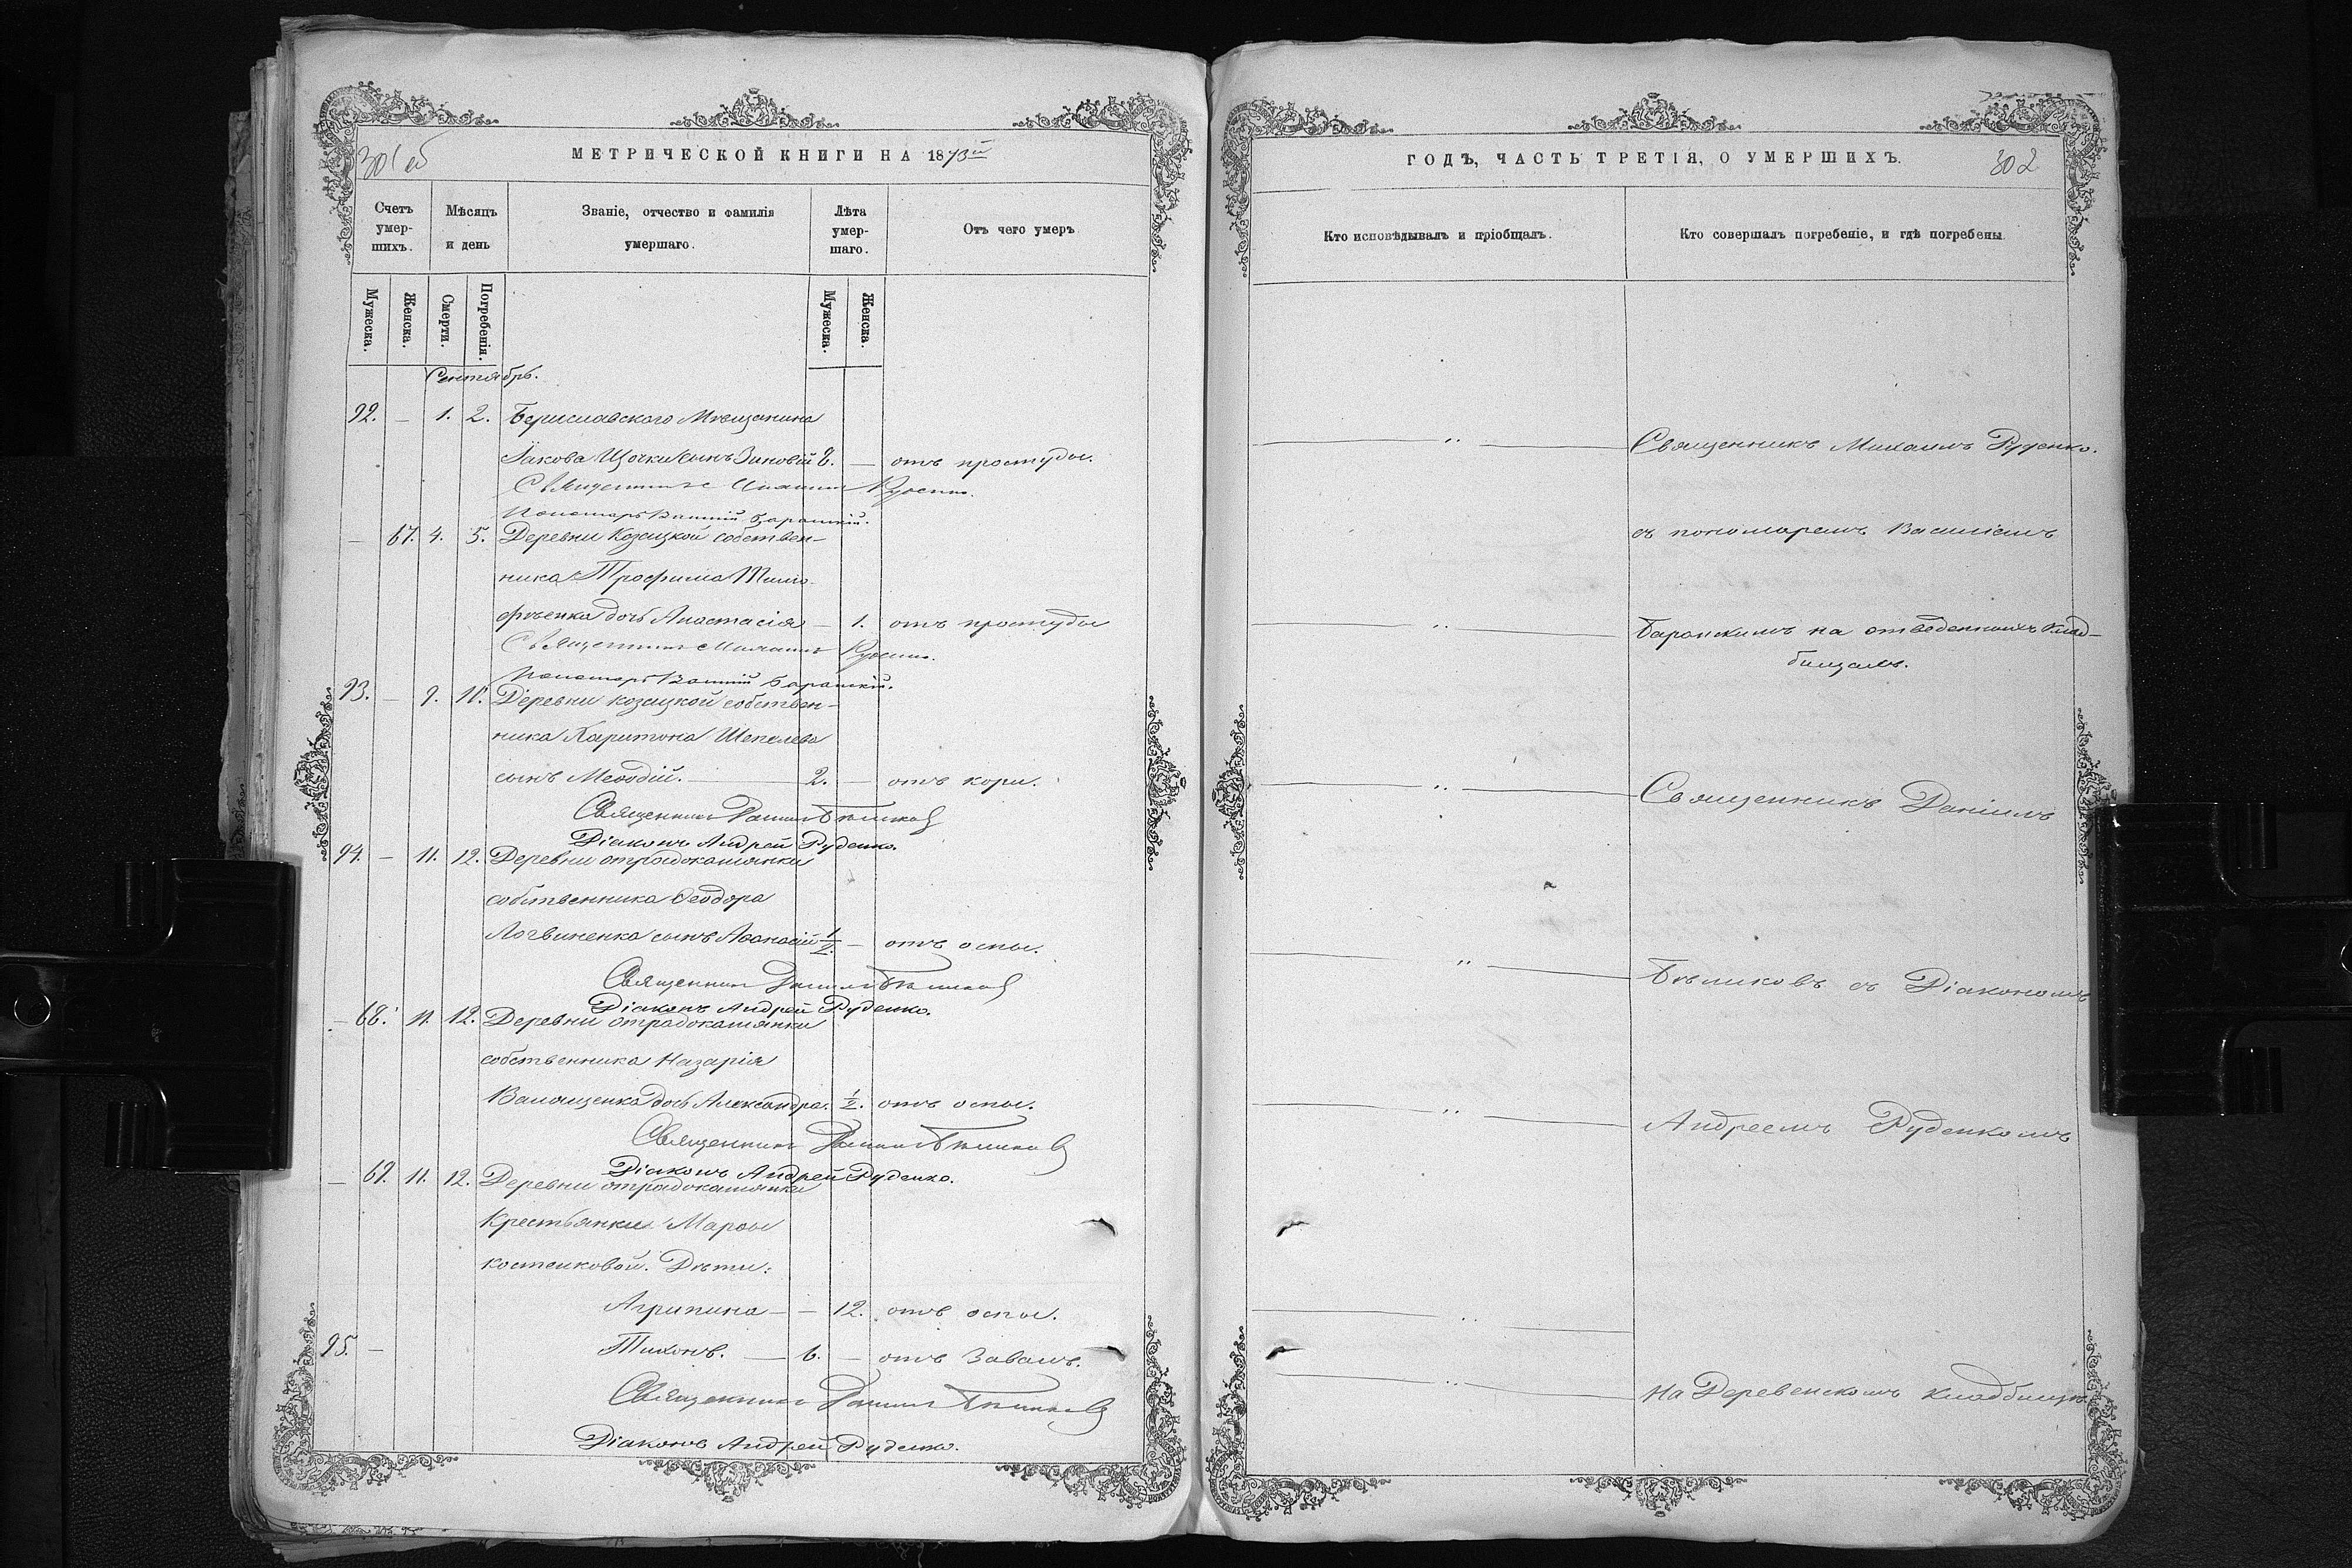 301 об
МЕТРИЧЕСКОЙ КНИГИ НА 1873й
Счетъ умер-шихъ.
Мѣсяцъ и день
Званіе, отчество и фамилія умершаго.
Лѣта умер-шаго.
Отъ чего умеръ
Мужеска.
Женска.
Смерти.
Погребенія.
Мужеска.
Женска.
Сентябрь.
92. — 1. 2. Бериславскаго Мѣщанина
Іакова Щочки сынъ Зиновій 2. — отъ простуды.
Священникъ Михаилъ Руденко.
Пономарь Василій Баранскій.
— 67. 4. 5. Деревни Козацкой собствен-
ника Трофима Тимо
фѣенка дочь Анастасія — 1. отъ простуды
Священникъ Михаилъ Руденко.
Пономарь Василій Баранскій.
93. — 9. 10. Деревни козацкой собствен-
ника Харитона Шепелева
сынъ Меѳодій. — 2. — отъ кори.
Священникъ Даніилъ Бѣликовъ
Діаконъ Андрей Руденко.
94. — 11. 12. Деревни отрадокаменки
собственника Ѳеодора
Логвиненка сынъ Аѳанасій 1/2. — отъ оспы.
Священникъ Даніилъ Бѣликовъ
Діаконъ Андрей Руденко.
— 68. 11. 12. Деревни отрадокаменки
собственника Назарія
дочь Александра. 1/2. отъ оспы.
Священникъ Даніилъ Бѣликовъ
Діаконъ Андрей Руденко.
— 69. 11. 12. Деревни отрадокаменки
Крестьянки Марѳы
костенковой. Дѣти:
Агрипина — — 12. отъ оспы.
95. — Тихонъ. — 6. — отъ Завалъ.
Священникъ Даніилъ Бѣликовъ
Діаконъ Андрей Руденко.
ГОДЪ, ЧАСТЬ ТРЕТІЯ, О УМЕРШИХЪ.
302
Кто исповѣдывалъ и пріобщалъ.
Кто совершалъ погребеніе, и гдѣ погребены
— " — Священникъ Михаилъ Руденко.
съ пономаремъ Василіемъ
— " — Баранскимъ на отведенныхъ клад-
бищахъ.
— " — Священникъ Даніилъ
— " — Бѣликовъ съ Діакономъ
— " — Андреемъ Руденкомъ
— " —
— " — на Деревенскомъ кладбищѣ.